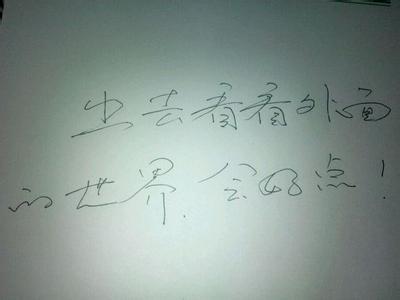 出去看看外面
的世界.会好点!